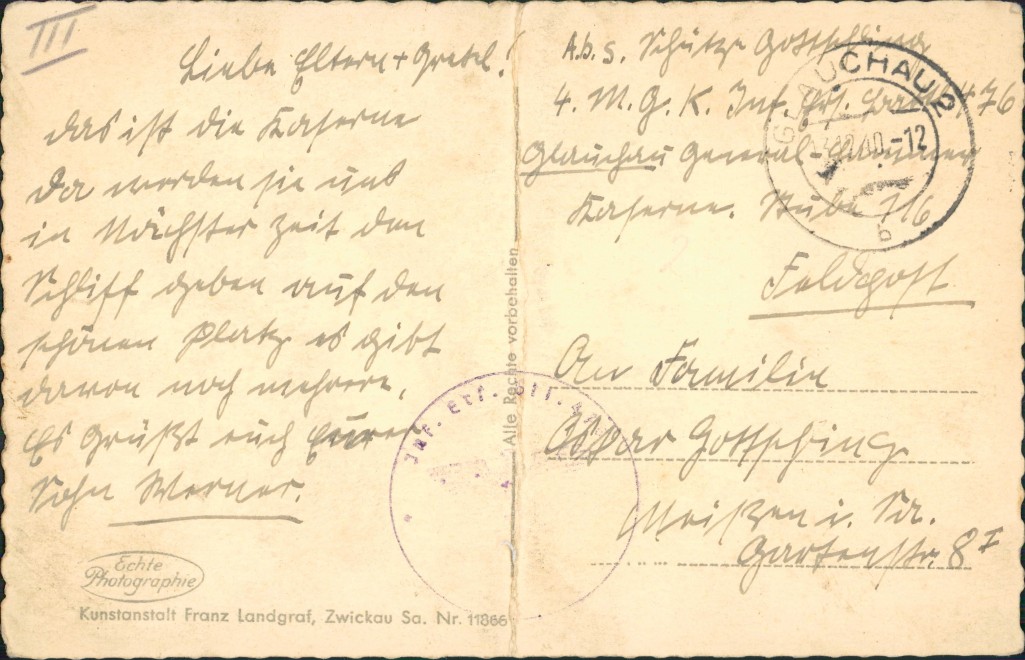 III
Liebe Eltern + Gretel!
das ist die Kaserne
da werden sie uns
in Nächster Zeit den
Schliff geben auf den
schönen Platz es gibt
davon noch mehrere,
Es Grüßt euch Euer
Sohn Werner.
Echte
Photographie
Kunstanstalt Franz Landgraf, Zwickau Sa. Nr. 11866
Alle Rechte vorbehalten
Abs. Schütze Gottsching
4. M. G. K. Inf. Ers. Batl. 476
Glauchau General-Hammer
Kaserne. Stube 116
Feldpost
GLAUCHAU 2
40.-12
b
Inf. Erf. Btl.
An Familie
Oskar Gottsching
Meißen i. Sa.
Gartenstr. 8 I